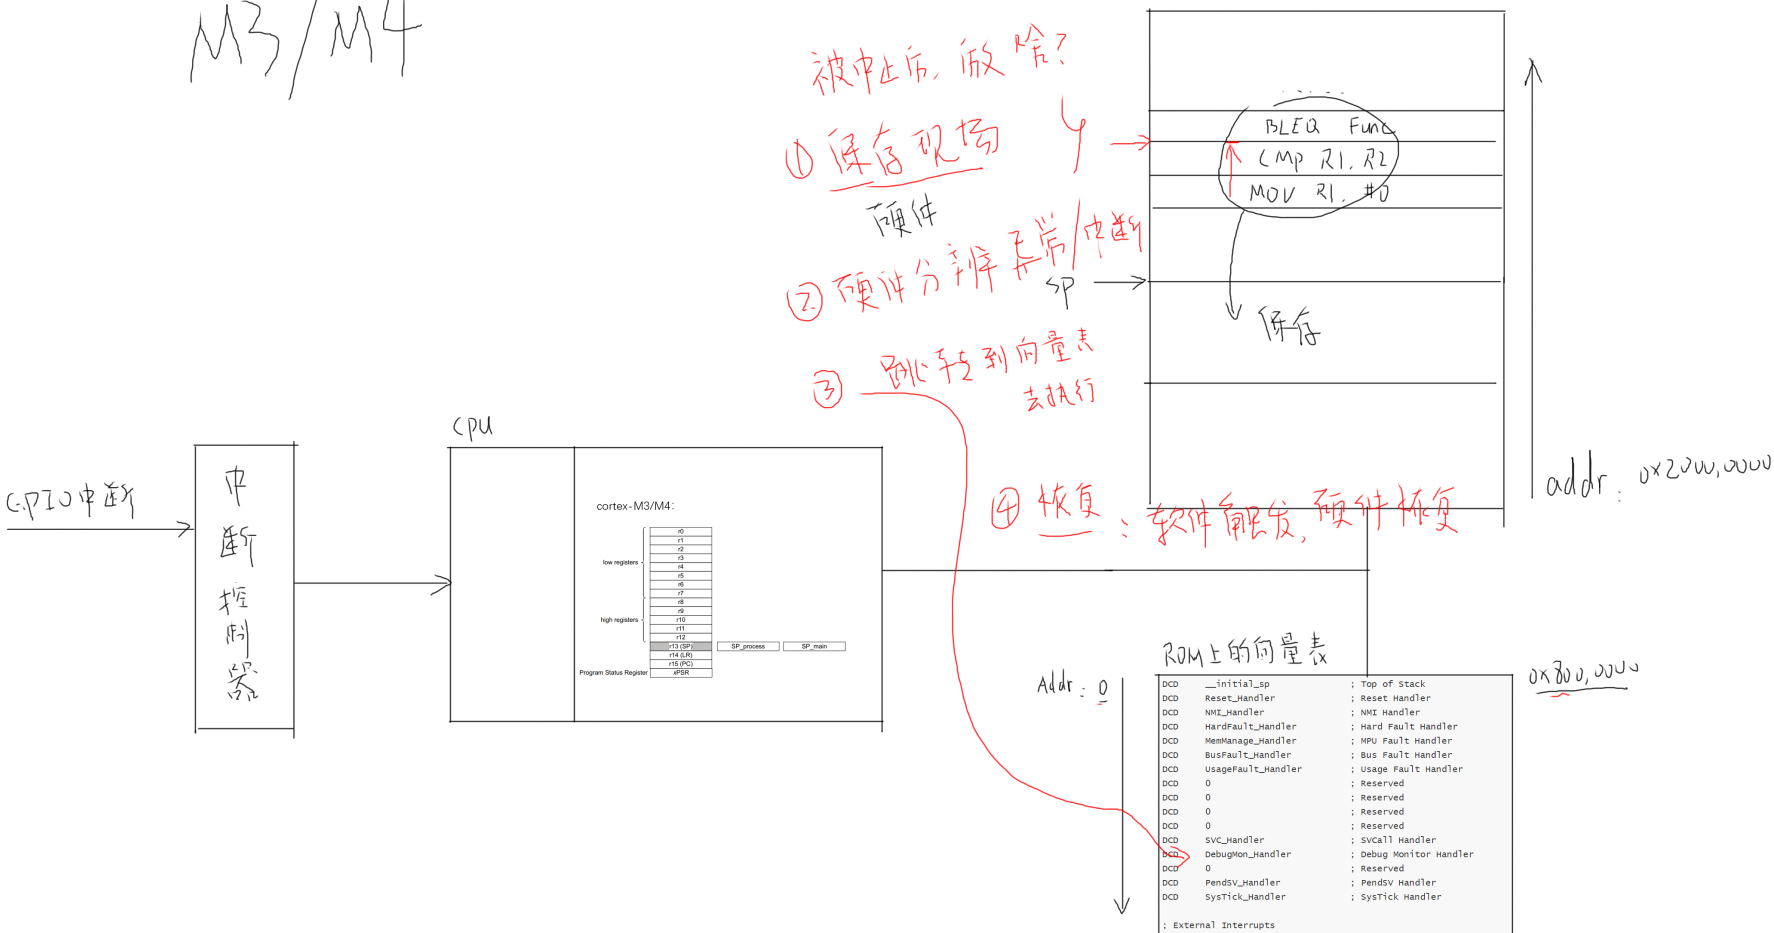 M3/M4
被中止后, 做啥?
① 保存现场
硬件
② 硬件分辨异常/中断
③ 跳转到向量表
去执行
④ 恢复: 软件触发, 硬件恢复
......
BLEQ Func
CMP R1, R2
MOV R1, #0
SP
保存
addr: 0x2000,0000
GPIO中断
中断控制器
CPU
cortex-M3/M4:
r0
r1
r2
r3
low registers
r4
r5
r6
r7
r8
r9
high registers
r10
r11
r12
r13 (SP) SP_process SP_main
r14 (LR)
r15 (PC)
Program Status Register xPSR
ROM上的向量表
Addr: 0
0x800,0000
DCD __initial_sp ; Top of Stack
DCD Reset_Handler ; Reset Handler
DCD NMI_Handler ; NMI Handler
DCD HardFault_Handler ; Hard Fault Handler
DCD MemManage_Handler ; MPU Fault Handler
DCD BusFault_Handler ; Bus Fault Handler
DCD UsageFault_Handler ; Usage Fault Handler
DCD 0 ; Reserved
DCD 0 ; Reserved
DCD 0 ; Reserved
DCD 0 ; Reserved
DCD SVC_Handler ; SVCall Handler
DCD DebugMon_Handler ; Debug Monitor Handler
DCD 0 ; Reserved
DCD PendSV_Handler ; PendSV Handler
DCD SysTick_Handler ; SysTick Handler
; External Interrupts